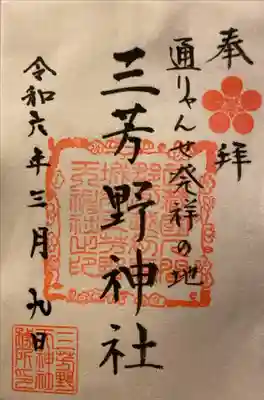 奉拝
通りゃんせ発祥の地
三芳野神社
令和六年三月九日